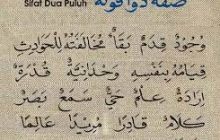 صفة دوا ڤوله
Sifat Dua Puluh
وُجُودْ قِدَمْ بَقَأْ مُخَالَفَتُهُ لِلْحَوَادِثِ
قِيَامُهُ بِنَفْسِهِ وَحْدَانِيَّةْ قُدْرَةْ
إِرَادَةْ عِلْمُ حَيٌّ سَمَعْ بَصَرْ
كَلَامْ قَادِرًا مُرِيدًا عَالِمًا